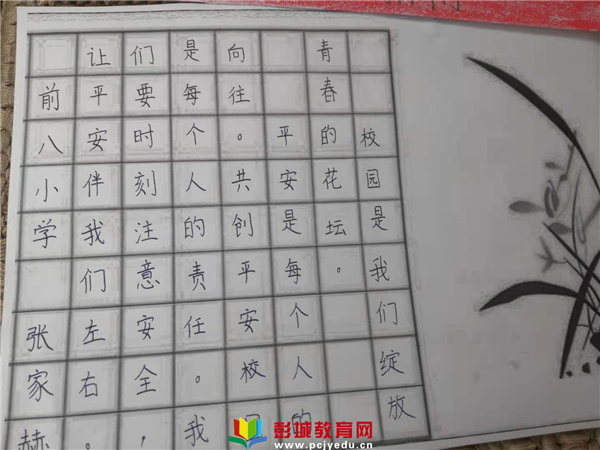 校园是我们绽放
青春的花坛。
平安是每个人的
向往。共创平安校
是每个人的责任。我
们要时刻注意安全，
让平安伴我们左右。
前八小学 张家赫
彭城教育网
www.pcjyedu.cn